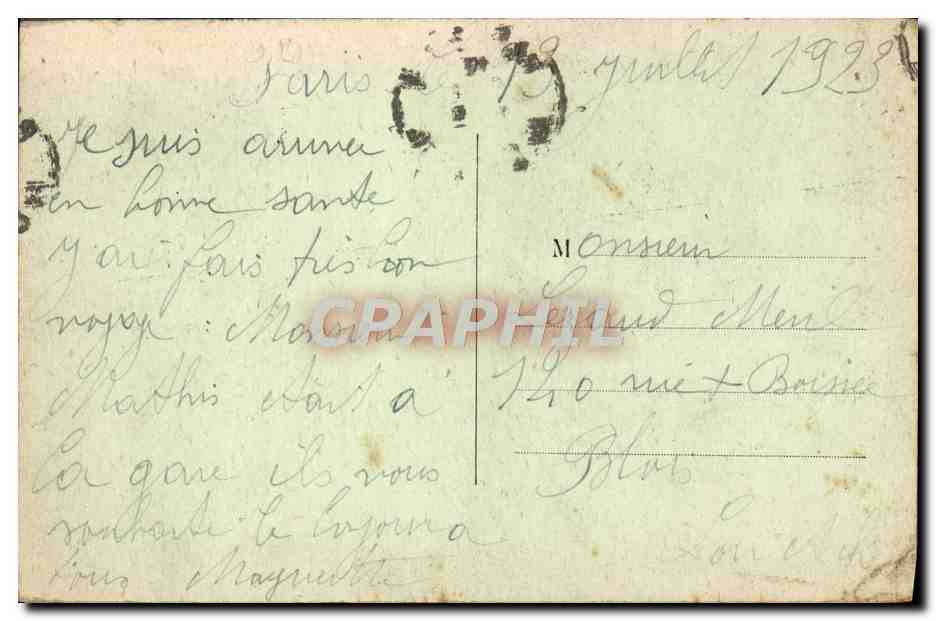 Paris le 19 juillet 1923
Je suis arrivée
en bonne santé
J'ai fais très bon
voyage : Monsieur
Mathis etait à
la gare ils vous
souhaite le bojour a
tous Maguette
Monsieur
Menil
120 rue Boissie
Blois
Loir et
CRAPHIL